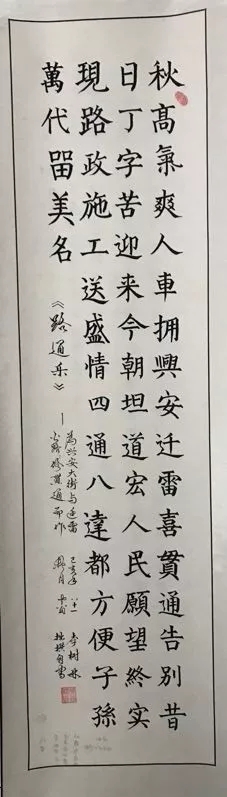 秋髙氣爽人車拥興安迁雷喜貫通告别昔
日丁字苦迎来今朝坦道宏人民願望終实
現路政施工送盛情四通八達都方便子孫
萬代留美名
《路通乐》—
為兴安大街与迁雷
貫通而作
己亥年 八十一 李树林
月 杜撰自書